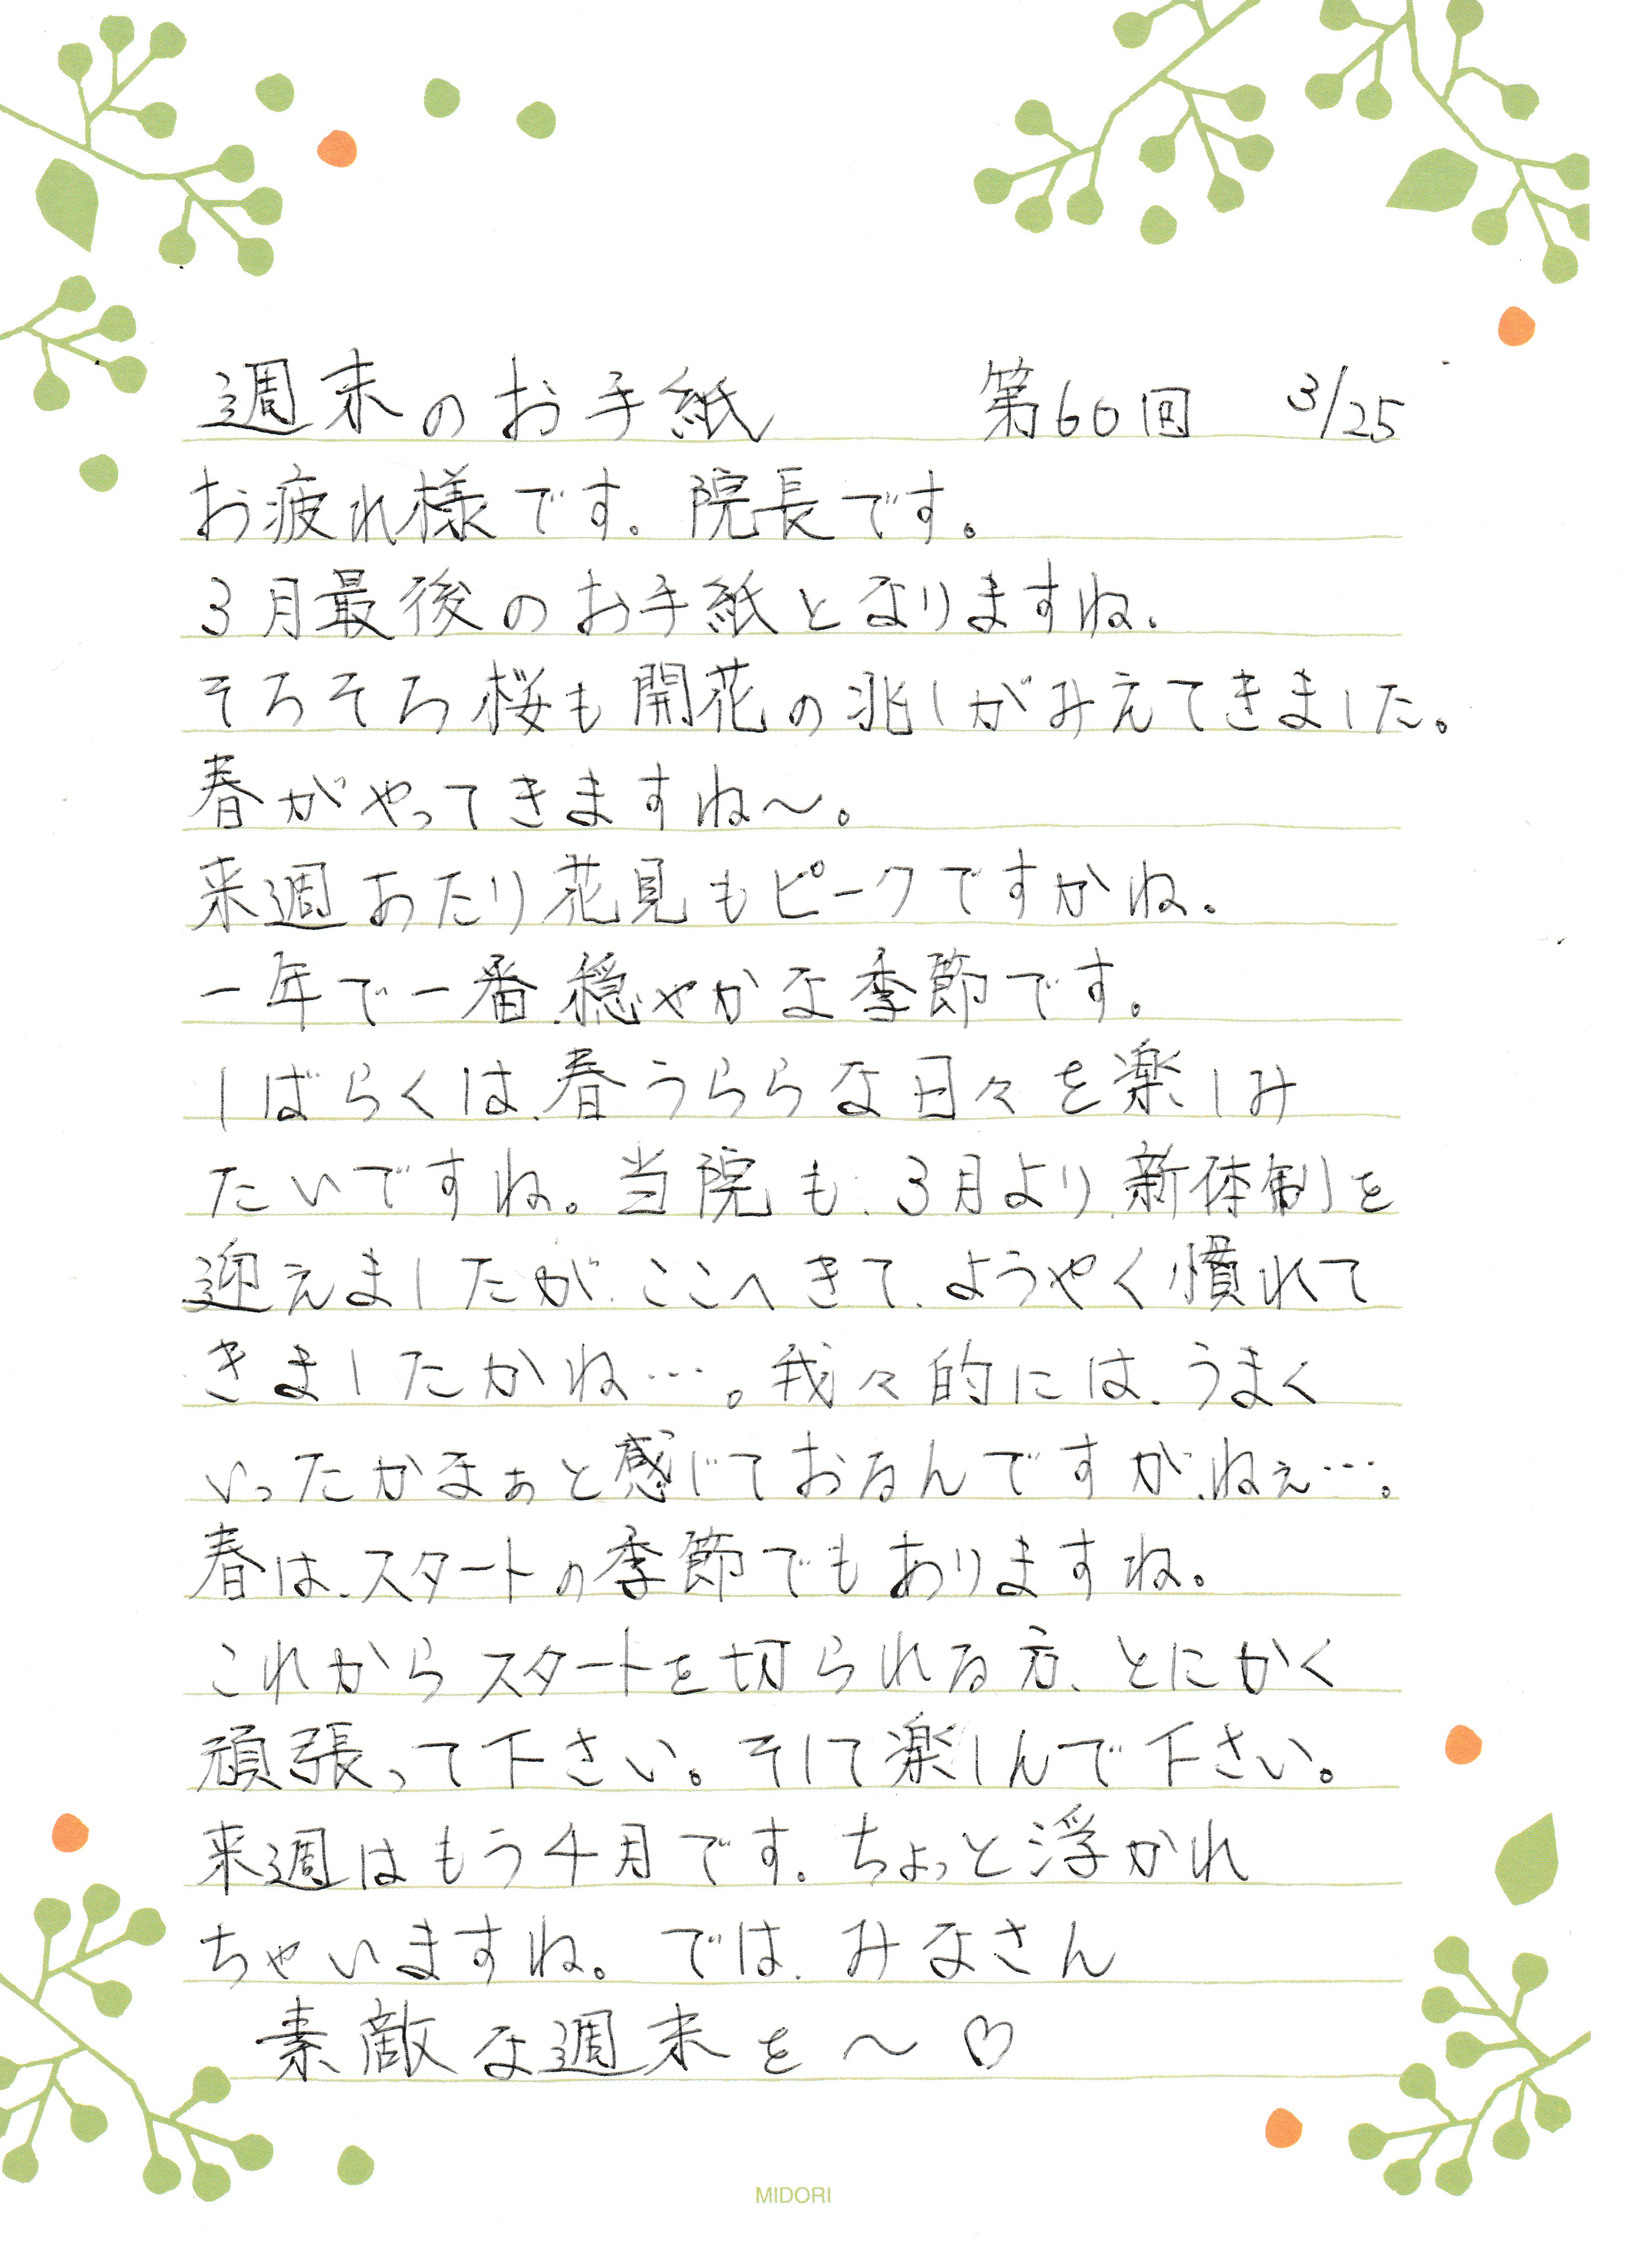 週末のお手紙 第60回 3/25
お疲れ様です。院長です。
3月最後のお手紙となりますね、
そろそろ桜も開花の兆しがみえてきました。
春がやってきますね〜。
来週あたり花見もピークですかね。
一年で一番、穏やかな季節です。
しばらくは、春うららな日々を楽しみ
たいですね。当院も、3月より、新体制を
迎えましたが、ここへきて、ようやく慣れて
きましたかね…。我々的には、うまく
いったかなぁと感じておるんですが、ねぇ…。
春は、スタートの季節でもありますね。
これからスタートを切られる方、とにかく
頑張って下さい。そして楽しんで下さい。
来週はもう4月です。ちょっと浮かれ
ちゃいますね。では、みなさん
素敵な週末を〜♡
MIDORI